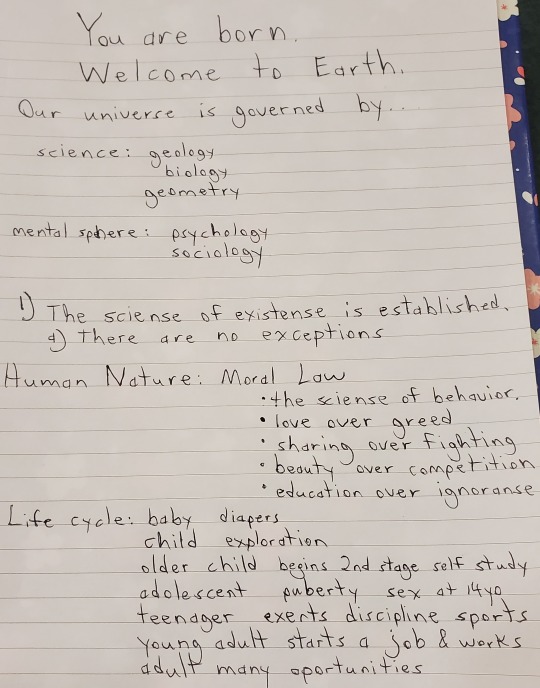 You are born.
Welcome to Earth.
Our universe is governed by...
science: geology
biology
geometry
mental sphere: psychology
sociology
1) The sciense of existense is established.
a) There are no exceptions
Human Nature: Moral Law
• the sciense of behavior.
• love over greed
• sharing over fighting
• beauty over competition
• education over ignoranse
Life cycle: baby diapers
child exploration
older child begins 2nd stage self study
adolescent puberty sex at 14yo
teenager exerts discipline sports
young adult starts a job & works
adult many oportunities